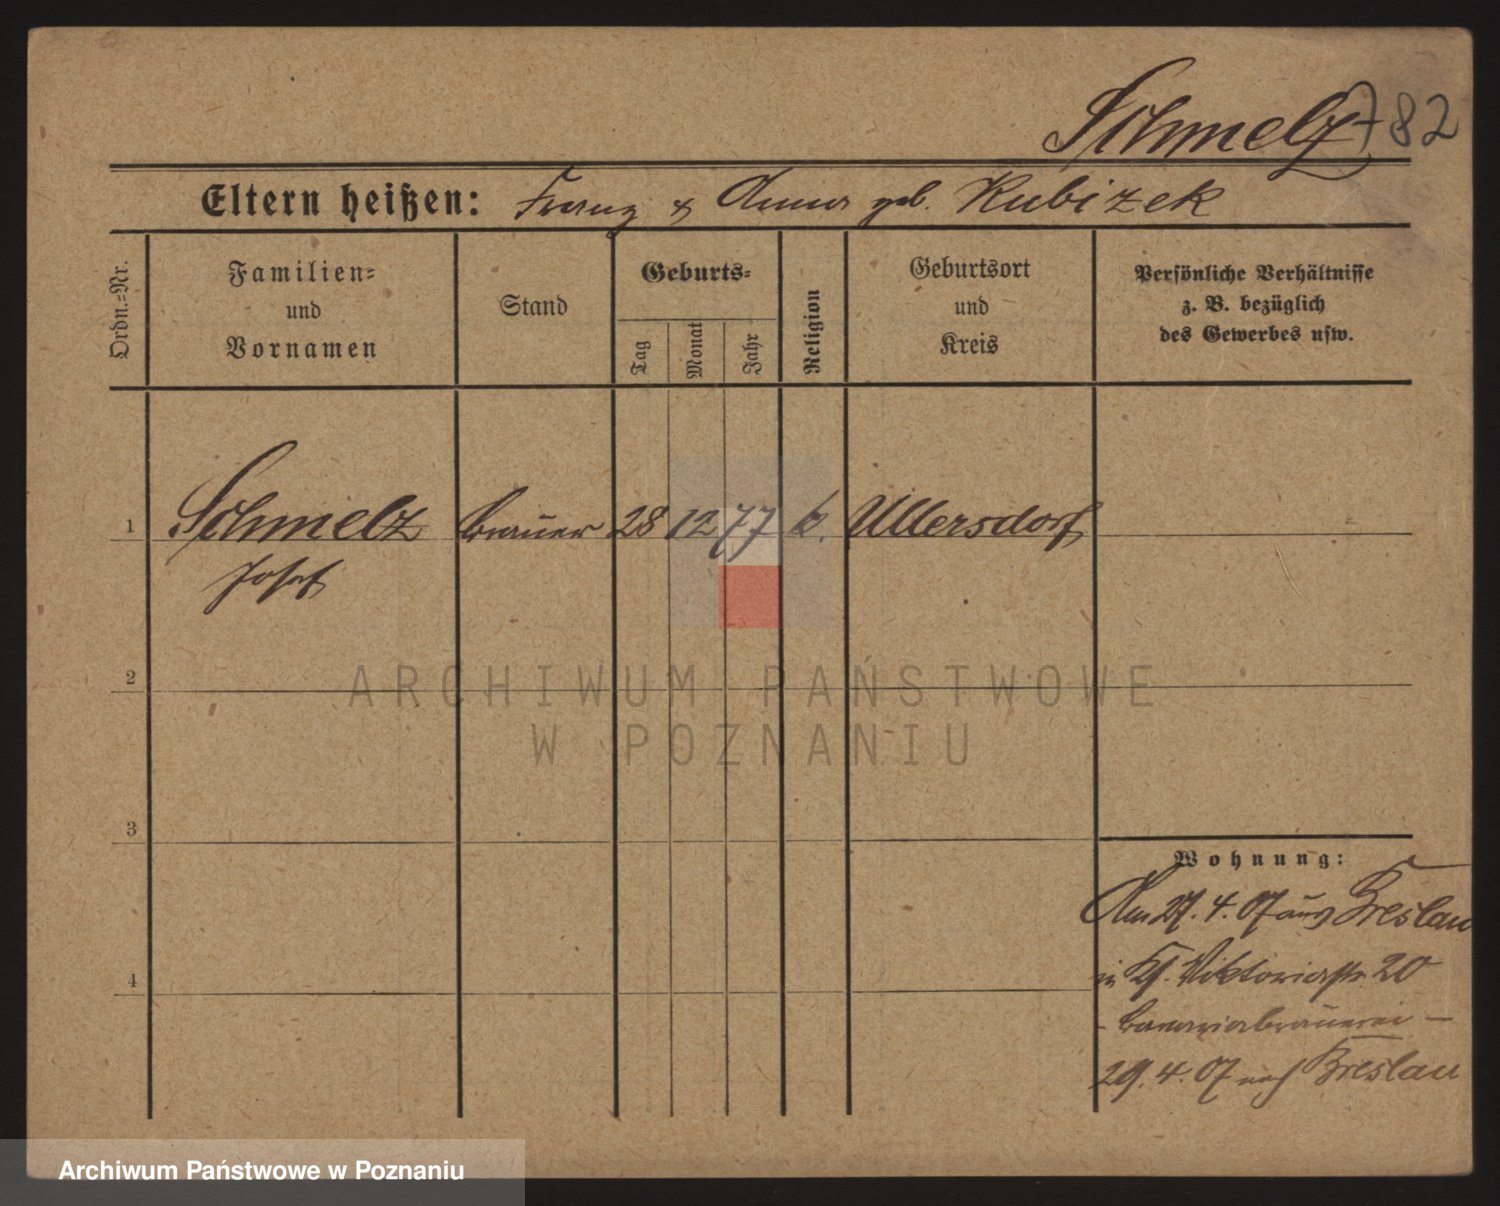 Schmelz 782
Eltern heißen: Franz & Anna geb. Kubizek
Ordn.=Nr.
Familien=
und
Vornamen
Stand
Geburts=
Tag
Monat
Jahr
Religion
Geburtsort
und
Kreis
Persönliche Verhältnisse
z. B. bezüglich
des Gewerbes usw.
1 Schmelz Brauer 28 12 77 k. Ullersdorf
Josef
2
ARCHIWUM PAŃSTWOWE
W POZNANIU
3
Wohnung:
Am 27. 4. 07 aus Breslau
4
in Viktoriastr. 20
- Bavariabrauerei -
29. 4. 07 nach Breslau
Archiwum Państwowe w Poznaniu